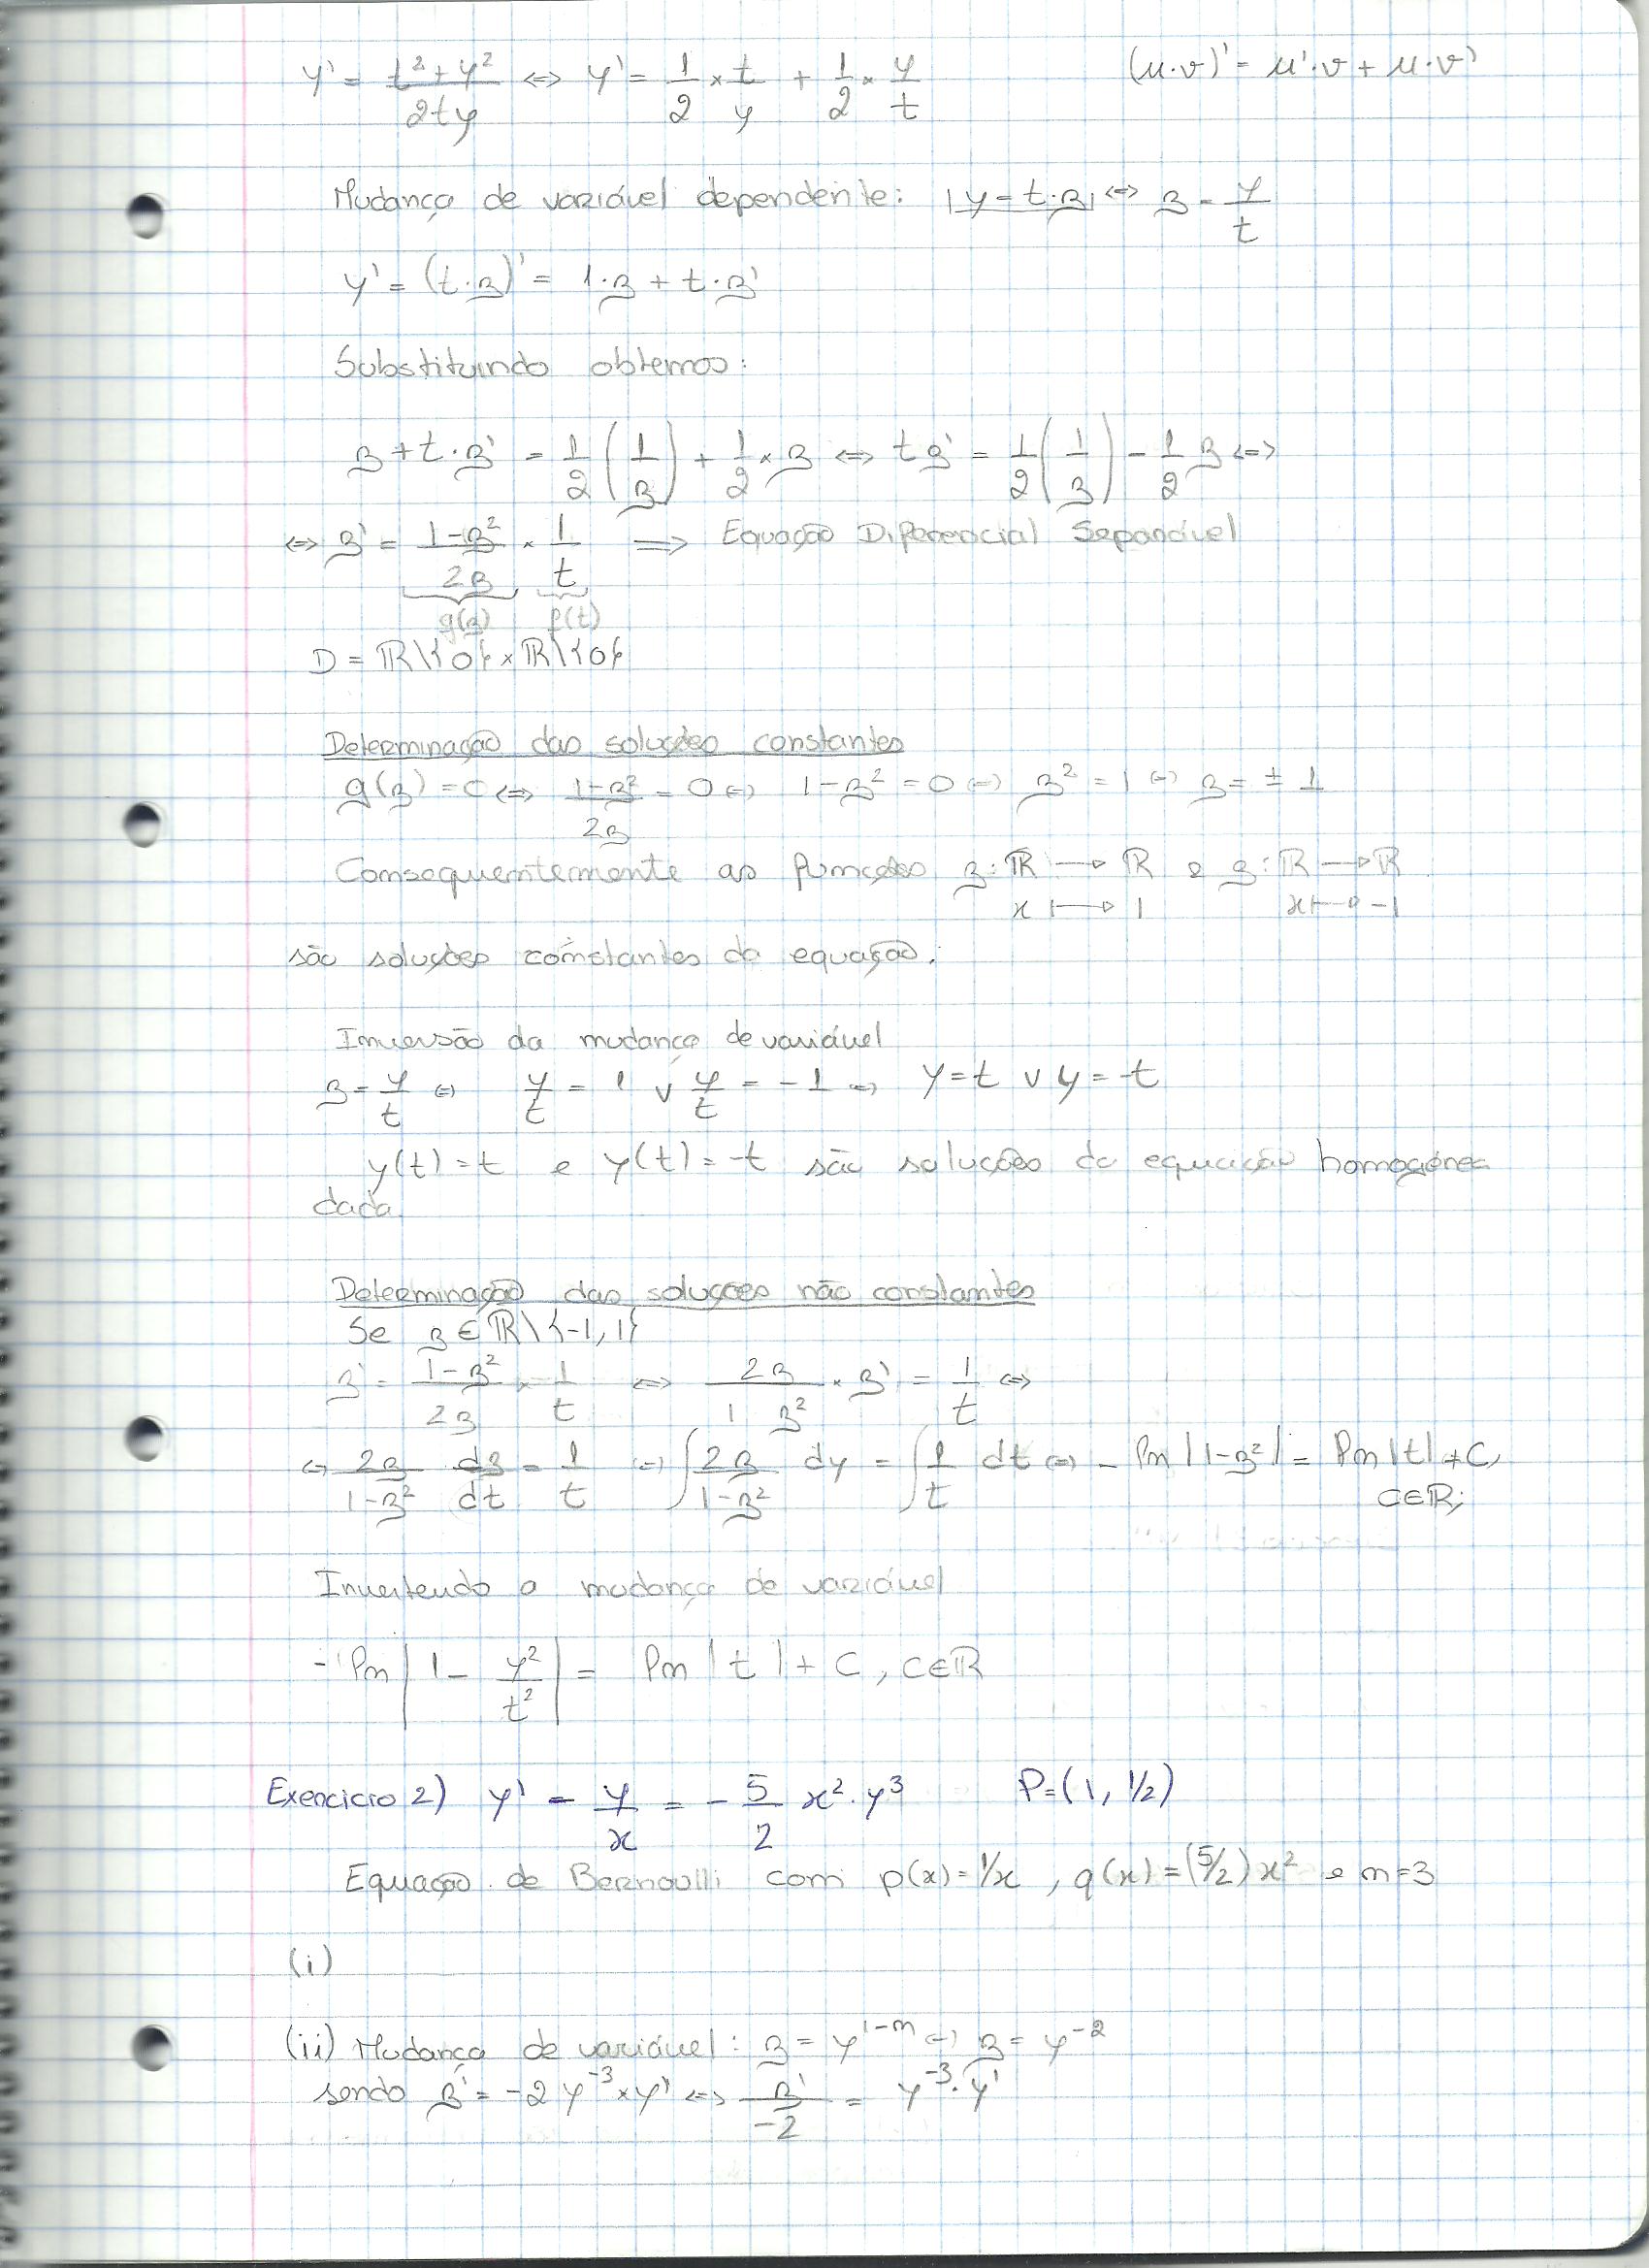 y' = (t²+y²)/(2ty) <=> y' = 1/2 × t/y + 1/2 × y/t (u·v)' = u'·v + u·v'
Mudança de variável dependente: |y = t·z| <=> z = y/t
y' = (t·z)' = 1·z + t·z'
Substituindo obtemos:
z + t·z' = 1/2 (1/z) + 1/2 × z <=> tz' = 1/2 (1/z) - 1/2 z <=>
<=> z' = (1-z²)/(2z) × 1/t => Equação Diferencial Separável
g(z) f(t)
D = ℝ\{0} × ℝ\{0}
Determinação das soluções constantes
g(z) = 0 <=> (1-z²)/(2z) = 0 <=> 1-z² = 0 <=> z² = 1 <=> z = ± 1
Consequentemente as funções z: ℝ → ℝ e z: ℝ → ℝ
x ↦ 1 x ↦ -1
são soluções constantes da equação.
Inversão da mudança de variável
z = y/t <=> y/t = 1 ∨ y/t = -1 <=> y = t ∨ y = -t
y(t) = t e y(t) = -t são soluções da equação homogénea
dada
Determinação das soluções não constantes
Se z ∈ ℝ\{-1, 1}
z' = (1-z²)/(2z) × 1/t <=> 2z/(1-z²) × z' = 1/t <=>
<=> 2z/(1-z²) dz/dt = 1/t <=> ∫ 2z/(1-z²) dy = ∫ 1/t dt <=> - ln|1-z²| = ln|t| + C,
C∈ℝ;
Invertendo a mudança de variável
- ln|1 - y²/t²| = ln|t| + C, C∈ℝ
Exercicio 2) y' - y/x = - 5/2 x²·y³ P=(1, 1/2)
Equação de Bernoulli com p(x) = 1/x , q(x) = (5/2) x² e n=3
(i)
(ii) Mudança de variável: z = y^(1-n) <=> z = y^(-2)
sendo z' = -2 y^(-3) × y' <=> z'/(-2) = y^(-3)·y'